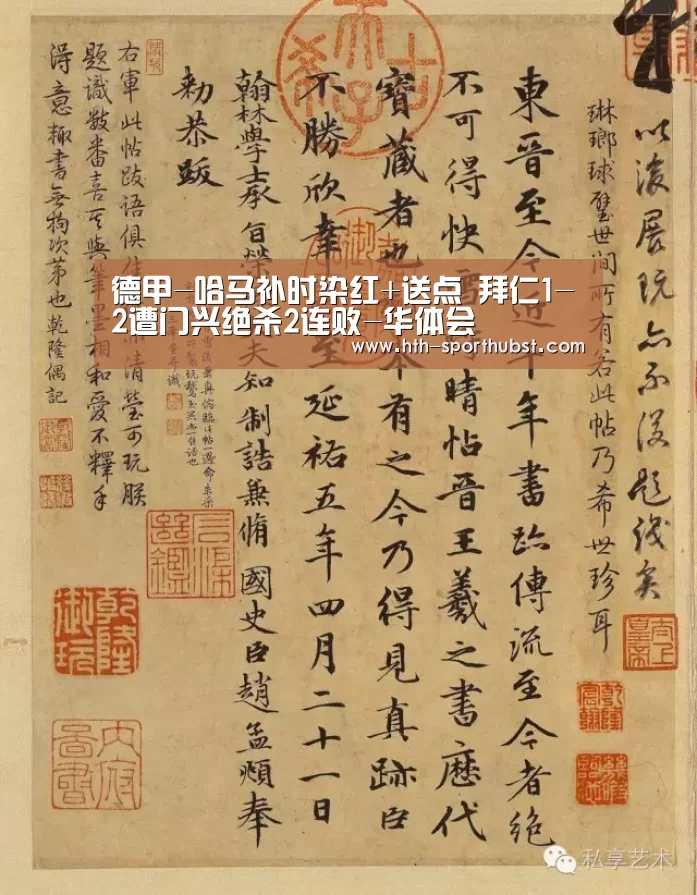 以後展玩亦不復題識矣
琳瑯球璧世間所有若此帖乃希世珍耳
東晉至今近千年書跡傳流至今者絕
不可得快雪時晴帖晉王羲之書歷代
寶藏者也有之今乃得見真跡臣
不勝欣幸至延祐五年四月二十一日
翰林學士承旨榮夫知制誥兼脩國史臣趙孟頫奉
勅恭跋
右軍此帖跋語俱佳清瑩可玩朕
題識數番喜其與筆墨相和愛不釋手
得意趣書無拘次第也乾隆偶記
太上皇帝
乾隆宸翰
乾隆御玩
德甲-哈马补时染红+送点 拜仁1-
2遭门兴绝杀2连败-华体会
www.hth-sporthubst.com
私享艺术